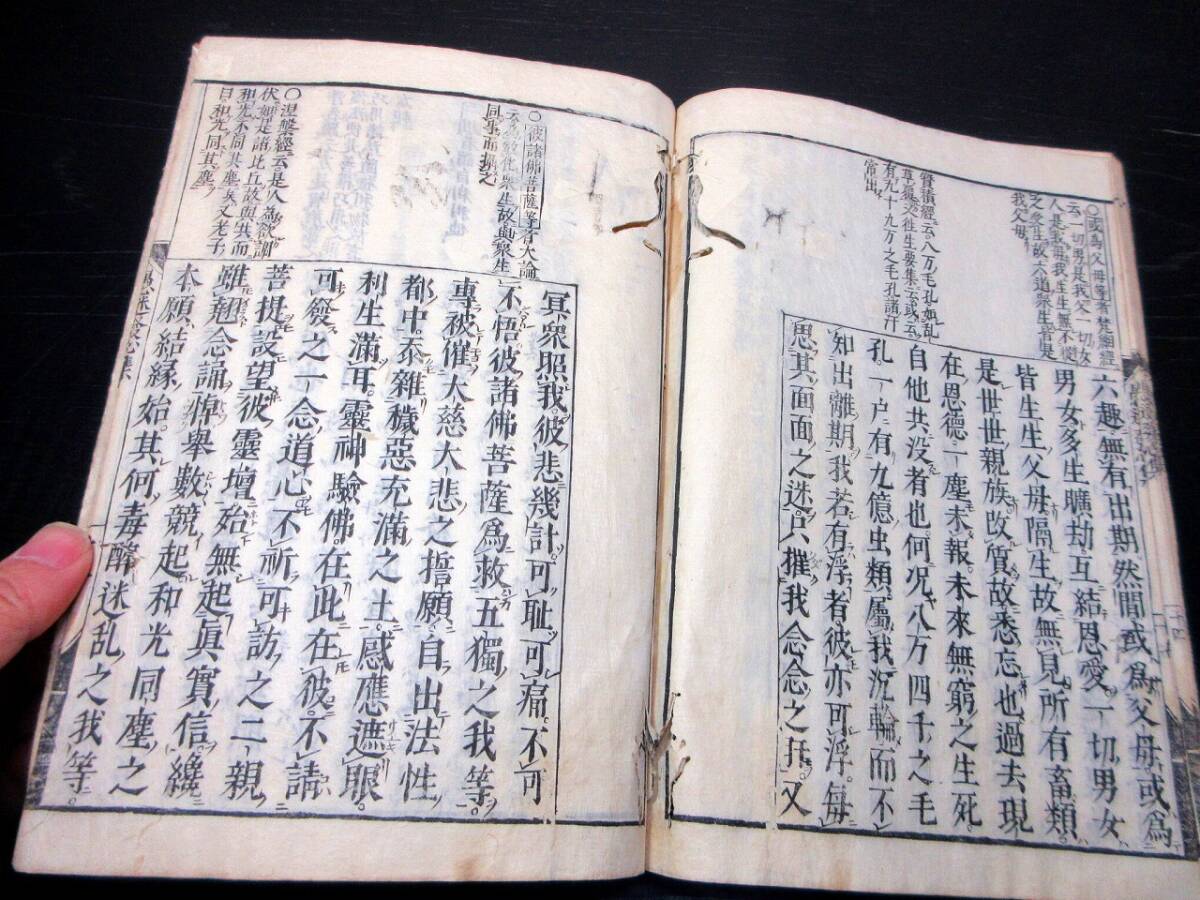 六趣無有出期然間或爲父母或爲
男女多生曠劫互結恩愛一切男女
皆生生父母隔生故無見所有畜類
是世世親族改質故悉忘也過去現
在恩德一塵未報未來無窮之生死
自他共没者也何況八万四千之毛
孔一戸有九億虫類屬我沉輪而不
知出離期我若有浮者彼亦可浮毎
思其面面之迷只摧我念念之肝又
○或爲父母等者梵網經
云一切男是我父一切女
人是我母我生生無不從
之受生故六道衆生皆是
我父母
寶積經云八万毛孔如乱
草覆文往生要集云或云
有九十九万之毛孔諸汗
常出
冥衆照我彼悲幾計可耻可痛不可
不悟彼諸佛菩薩爲救五獨之我等
專被催大慈大悲之誓願自出法性
都中忝雜穢惡充滿之土感應遮眼
利生滿耳靈神驗佛在此在彼不請
可發之一念道心不祈可訪之二親
菩提設望彼靈壇殆無起眞實信纔
雖翹念誦悼擧數競起和光同塵之
本願結縁始其何毒醉迷乱之我等
○彼諸佛菩薩等者大論
云爲教化衆生故與衆生
同事而攝之
○涅槃經云是人爲欲調
伏如是諸比丘故與共而
和光不同其塵矣又老子
曰和光同其塵